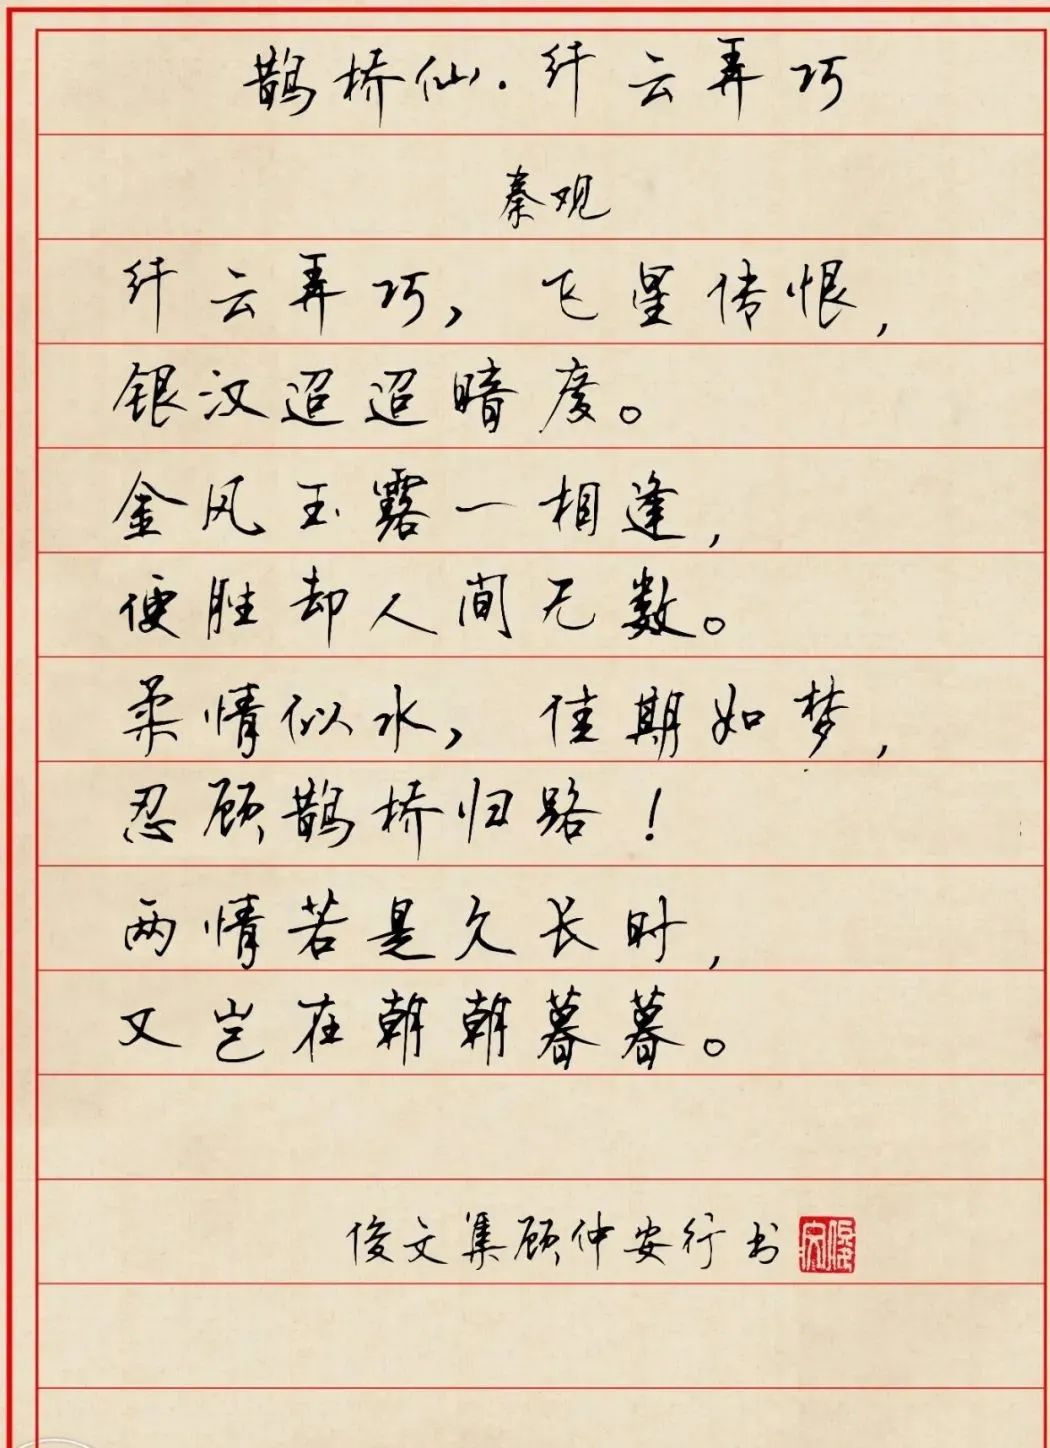 鹊桥仙·纤云弄巧
秦观
纤云弄巧，飞星传恨，
银汉迢迢暗度。
金风玉露一相逢，
便胜却人间无数。
柔情似水，佳期如梦，
忍顾鹊桥归路！
两情若是久长时，
又岂在朝朝暮暮。
俊文集顾仲安行书